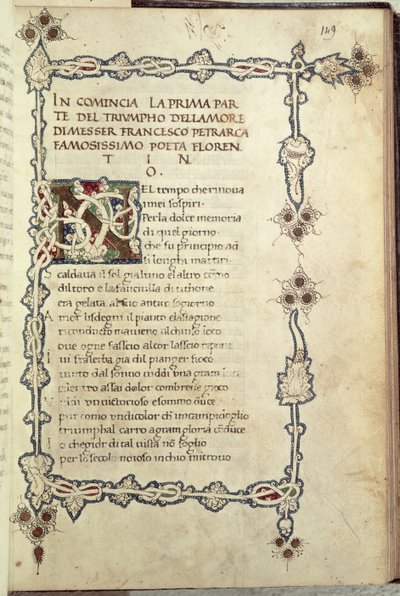 149
IN COMINCIA LA PRIMA PAR
TE DEL TRIVMPHO DELLAMORE
DI MESSER FRANCESCO PETRARCA
FAMOSISSIMO POETA FLOREN
T I N
O.
NEL tempo che rinova
imei sospiri
Per la dolce memoria
di quel giorno
che fu principio ad
si longhi martiri
Scaldava il sol gia luno el altro corno
del toro
era gelata al suo antico sogiorno
Amor li sdegni il pianto e la stagione
ricondutto maveano al chiuso loco
ove ogne fascio al cor lasso ripone
Ivi fra lerba gia del pianger fioco
vinto dal sonno viddi una gran luce
dentro assai dolor con breve gioco
Viddi un victorioso e sommo duce
pur como un di color ch in campidoglio
triumphal carro a gran gloria conduce
Io che gioir di tal vista non soglio
per lo secol noioso in ch io mi trovo